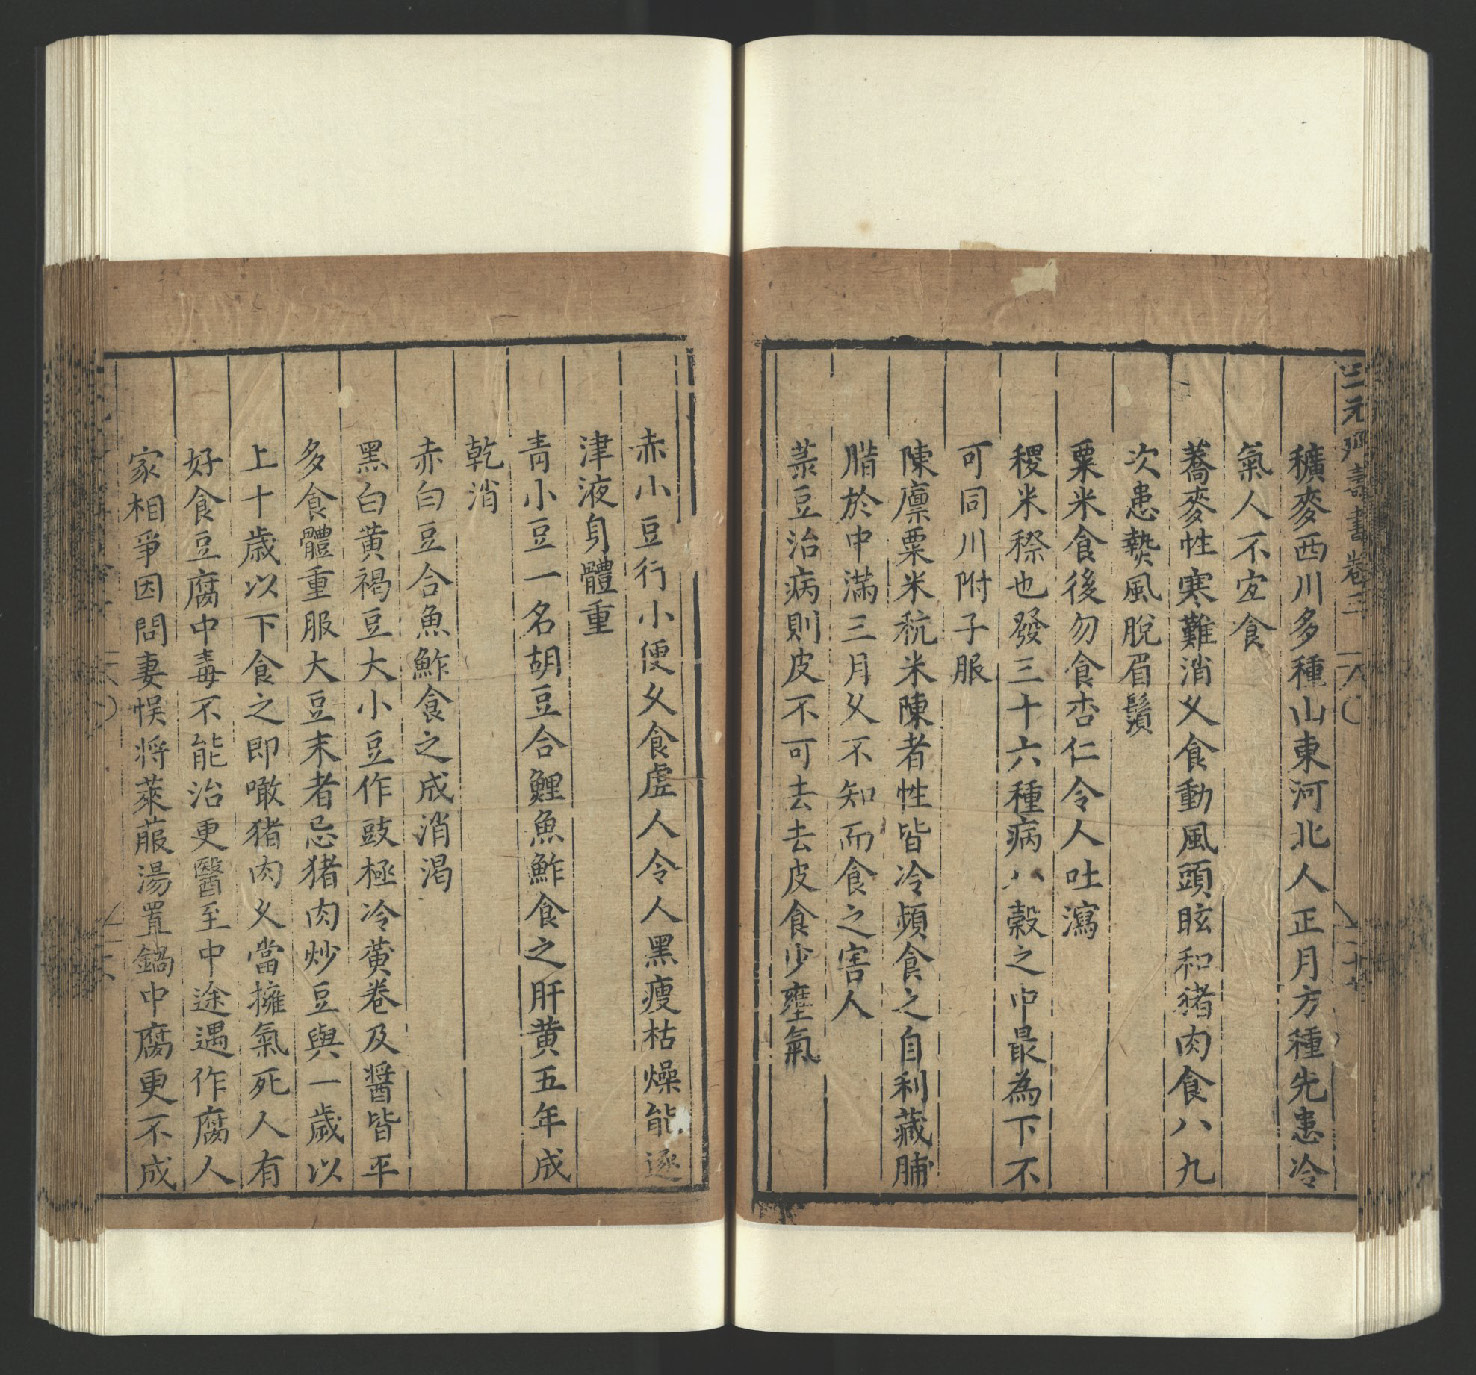 三元延壽書卷三
穬麥西川多種山東河北人正月方種先患冷
氣人不宜食
蕎麥性寒難消久食動風頭眩和猪肉食八九
次患熱風脫眉鬚
粟米食後勿食杏仁令人吐瀉
稷米穄也發三十六種病八穀之中最為下不
可同川附子服
陳廩粟米秔米陳者性皆冷頻食之自利藏脯
腊於中滿三月久不知而食之害人
菉豆治病則皮不可去去皮食少壅氣
赤小豆行小便久食虛人令人黑瘦枯燥能逐
津液身體重
青小豆一名胡豆合鯉魚鮓食之肝黄五年成
乾消
赤白豆合魚鮓食之成消渴
黑白黄褐豆大小豆作豉極冷黄卷及醬皆平
多食體重服大豆末者忌猪肉炒豆與一歲以
上十歲以下食之即噉猪肉久當擁氣死人有
好食豆腐中毒不能治更醫至中途遇作腐人
家相爭因問妻悞將萊菔湯置鍋中腐更不成